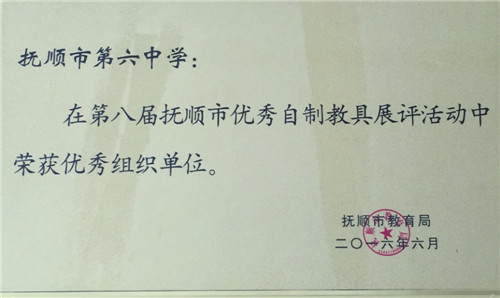 抚顺市第六中学：
在第八届抚顺市优秀自制教具展评活动中
荣获优秀组织单位。
抚顺市教育局
二〇一六年六月